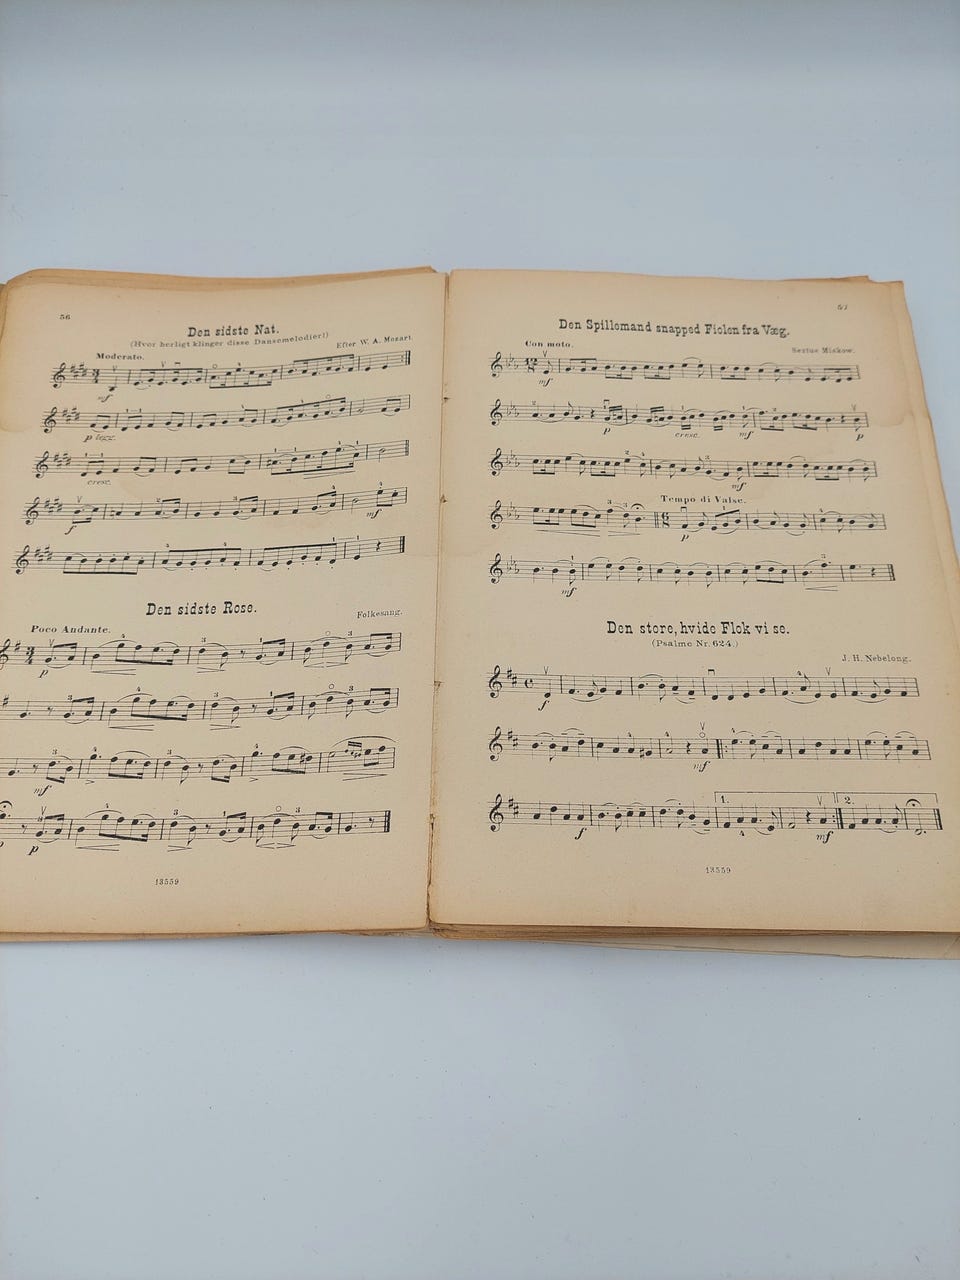 56
Den sidste Nat.
(Hvor herligt klinger disse Dansemelodier!)
Efter W. A. Mozart
Moderato.
mf
p legg.
cresc.
f
mf
Den sidste Rose.
Folkesang.
Poco Andante.
p
mf
p
13559
57
Den Spillemand snapped Fiolen fra Væg.
Con moto.
Sextus Miskow.
mf
p
cresc.
mf
p
mf
Tempo di Valse.
p
mf
Den store, hvide Flok vi se.
(Psalme Nr. 624.)
J. H. Nebelong.
f
mf
1.
2.
f
mf
13559